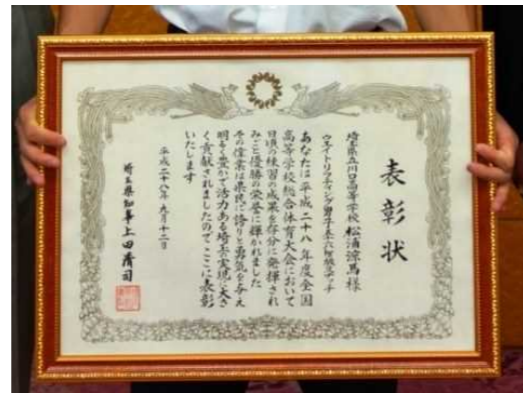 表彰状
埼玉県立川口高等学校 松浦涼馬様
ウエイトリフティング男子五六kg級スナッチ
あなたは平成二十八年度全国
高等学校総合体育大会において
日頃の練習の成果を存分に発揮され
みごと優勝の栄誉に輝かれました
その偉業は県民に誇りと勇気を与え
明るく豊かで活力ある埼玉の実現に大き
く貢献されましたのでここに表彰
いたします
平成二十八年九月十二日
埼玉県知事上田清司